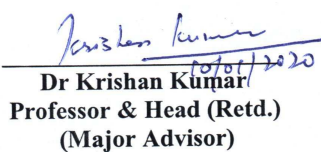 Krishan Kumar
10/01/2020
Dr Krishan Kumar
Professor & Head (Retd.)
(Major Advisor)